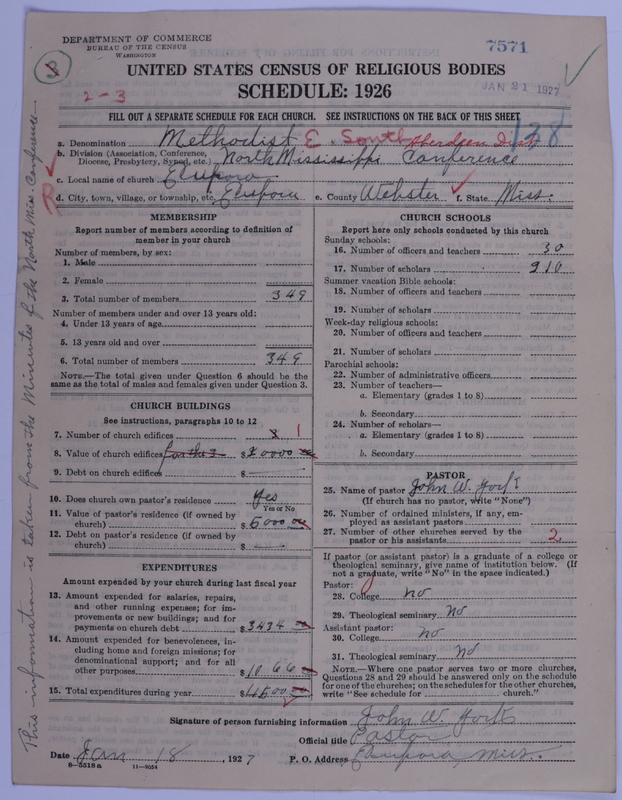 DEPARTMENT OF COMMERCE
BUREAU OF THE CENSUS
WASHINGTON
7571
3
2-3
JAN 21 1927
UNITED STATES CENSUS OF RELIGIOUS BODIES
SCHEDULE: 1926
FILL OUT A SEPARATE SCHEDULE FOR EACH CHURCH. SEE INSTRUCTIONS ON THE BACK OF THIS SHEET
138
a. Denomination Methodist E. South Aberdeen Dist
b. Division (Association, Conference, Diocese, Presbytery, Synod, etc.) North Mississippi Conference
c. Local name of church Eupora
d. City, town, village, or township, etc. Eupora e. County Webster f. State Miss.
This information is taken from the Minutes of the North Miss Conference
MEMBERSHIP
Report number of members according to definition of
member in your church
Number of members, by sex:
1. Male
2. Female
3. Total number of members 349
Number of members under and over 13 years old:
4. Under 13 years of age
5. 13 years old and over
6. Total number of members 349
NOTE.—The total given under Question 6 should be the
same as the total of males and females given under Question 3.
CHURCH BUILDINGS
See instructions, paragraphs 10 to 12
7. Number of church edifices 1
8. Value of church edifices for the 3 $
9. Debt on church edifices $
10. Does church own pastor's residence Yes
Yes or No
11. Value of pastor's residence (if owned by
church) $6000
12. Debt on pastor's residence (if owned by
church) $
EXPENDITURES
Amount expended by your church during last fiscal year
13. Amount expended for salaries, repairs,
and other running expenses; for im-
provements or new buildings; and for
payments on church debt $3434
14. Amount expended for benevolences, in-
cluding home and foreign missions; for
denominational support; and for all
other purposes $1066
15. Total expenditures during year $4500
CHURCH SCHOOLS
Report here only schools conducted by this church
Sunday schools:
16. Number of officers and teachers 30
17. Number of scholars 310
Summer vacation Bible schools:
18. Number of officers and teachers
19. Number of scholars
Week-day religious schools:
20. Number of officers and teachers
21. Number of scholars
Parochial schools:
22. Number of administrative officers
23. Number of teachers—
a. Elementary (grades 1 to 8)
b. Secondary
24. Number of scholars—
a. Elementary (grades 1 to 8)
b. Secondary
PASTOR
25. Name of pastor John W. York
(If church has no pastor, write "None")
26. Number of ordained ministers, if any, em-
ployed as assistant pastors
27. Number of other churches served by the
pastor or his assistants 2
If pastor (or assistant pastor) is a graduate of a college or
theological seminary, give name of institution below. (If
not a graduate, write "No" in the space indicated.)
Pastor:
28. College no
29. Theological seminary No
Assistant pastor:
30. College no
31. Theological seminary no
NOTE.—Where one pastor serves two or more churches,
Questions 28 and 29 should be answered only on the schedule
for one of the churches; on the schedules for the other churches,
write "See schedule for church."
Signature of person furnishing information John W. York
Official title Pastor
Date Jan 18, 1927 P. O. Address Eupora, Miss.
8—5518a 11—9054